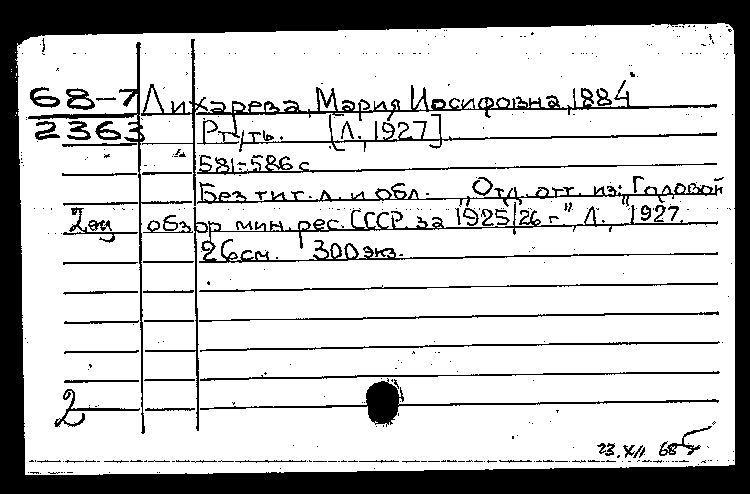 68-7 Лихарева, Мария Иосифовна, 1884
2363 Ртуть. [Л., 1927].
581-586 с
Без тит. л. и обл. "Отд. отт. из: "Годовой
2эц обзор мин. рес. СССР за 1925/26 г", Л., 1927.
26см. 300 экз.
2
23.XII 68